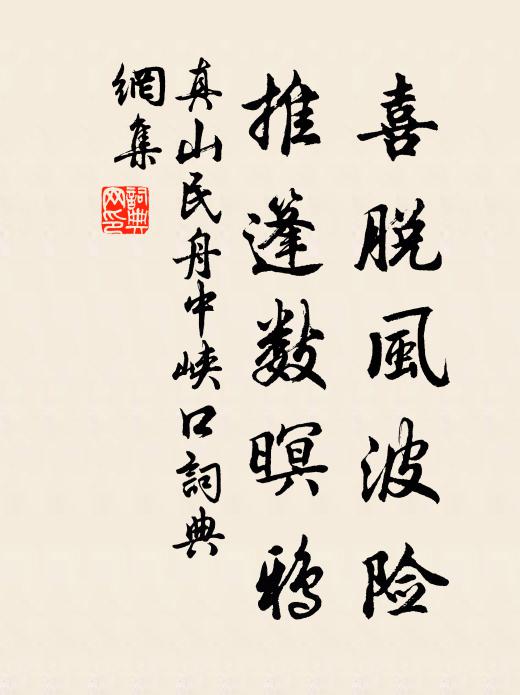 喜脱風波险
推篷数暝鸦
真山民舟中峡口詞典
網集
詞典網印